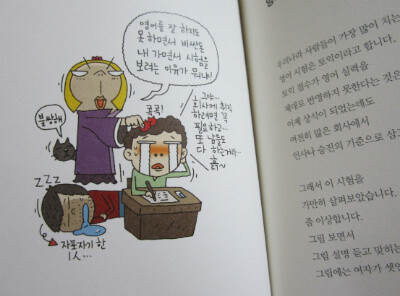 영어를 잘 하지도
못 하면서 비싼 돈
내 가면서 시험을
보려는 이유가 뭐냐!
콕콕!
불쌍해
그야...
회사에 취직
하려면 꼭
필요하고...
또 남들도
다 하는거라..
흙~
ZZZ
자포자기 한
1人...
우리나라 사람들이 가장 많이 치는
영어 시험은 토익이라고 합니다.
토익 점수가 영어 실력을
제대로 반영하지 못한다는 것은
이제 상식이 되었는데도
여전히 많은 회사에서
인사나 승진의 기준으로 삼고
그래서 이 시험을
가만히 살펴보았습니다.
좀 이상합니다.
그림 보면서
그림 설명 듣고 맞히는
그림에는 여자가 셋인